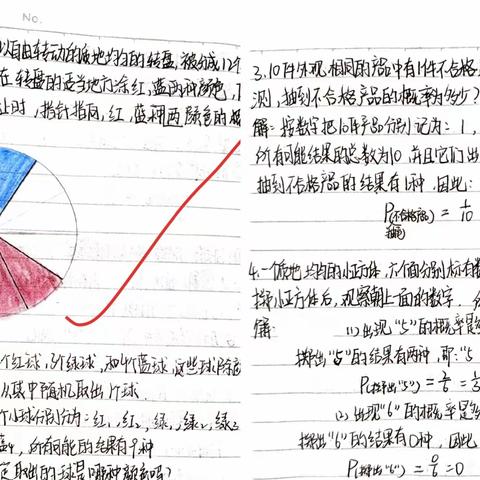 No.
以自由转动的质地均匀的转盘,被分成12个
在转盘的适当地方涂红,蓝两种颜色,
止时,指针指向,红,蓝两种颜色的概
个红球,3个绿球,和4个蓝球,这些球除
从其中随机取出1个球.
个小球分别为:红1,红2,绿1,绿2,绿3
蓝4,所有可能的结果有9种
定取出的球是哪种颜色吗?
3.10件外观相同的产品中有1件不合格,
测,抽到不合格产品的概率为多少?
解:按数字把10件产品分别记为:1,
所有可能结果的总数为10,并且它们出
抽到不合格产品的结果有1种,因此:
P(不合格产品) = 1/10
4.一质地均匀的小正方体,六个面分别标有数
掷小正方体后,观察朝上面的数字.
解: (1)出现"5"的概率是
掷出"5"的结果有两种,即:"5
P(掷出"5") = 2/6 = 1/3
(2)出现"6"的概率是
掷出"6"的结果有0种,因此
P(掷出"6") = 0/6 = 0